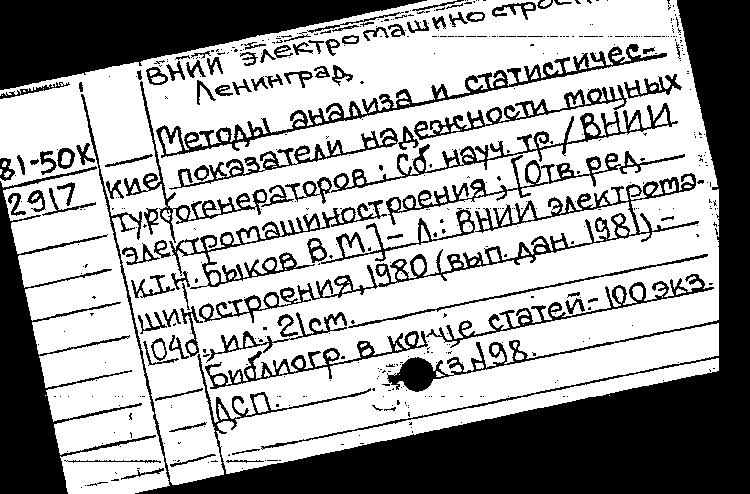 ВНИИ электромашиностроения
Ленинград.
81-50К
2917
Методы анализа и статистичес-
кие показатели надежности мощных
турбогенераторов : Сб. науч. тр. / ВНИИ
электромашиностроения ; [Отв. ред.
к.т.н. Быков В.М.] – Л. : ВНИИ электрома-
шиностроения, 1980 (вып. дан. 1981). –
104с., ил.; 21 cm.
Библиогр. в конце статей. – 100 экз.
ДСП. Экз. N98.